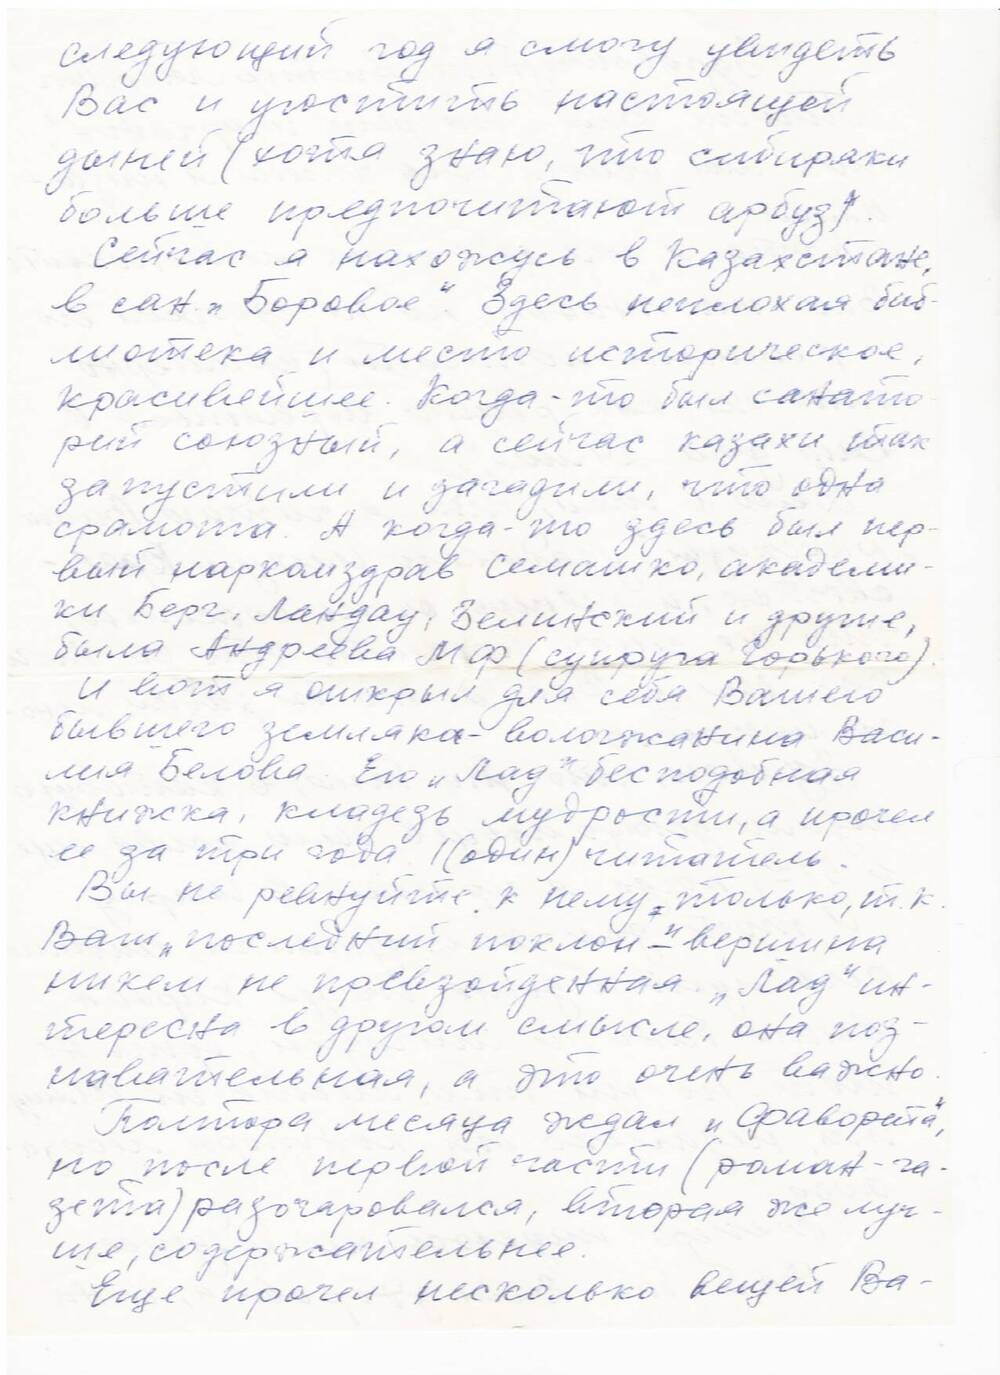 следующий год я смогу увидеть
Вас и угостить настоящей
дыней (хотя знаю, что сибиряки
больше предпочитают арбуз).
Сейчас я нахожусь в Казахстане,
в сан. „Боровое". Здесь неплохая биб-
лиотека и место историческое,
красивейшее. Когда-то был санато-
рий союзный, а сейчас казахи так
запустили и загадили, что одна
срамота. А когда-то здесь был пер-
вый наркомздрав Семашко, академи-
ки Берг, Ландау, Зелинский и другие,
была Андреева МФ (супруга Горького).
И вот я открыл для себя Вашего
бывшего земляка-вологжанина Васи-
лия Белова. Его „Лад" бесподобная
книжка, кладезь мудрости, а прочел
ее за три года 1 (один) читатель.
Вы не ревнуйте к нему только, т.к.
Ваш „последний поклон" – вершина
никем не превзойденная. „Лад" ин-
тересна в другом смысле, она поз-
навательная, а это очень важно.
Полтора месяца ждал „Фаворита",
но после первой части (роман-га-
зета) разочаровался, вторая же луч-
ше, содержательнее.
Еще прочел несколько вещей Ва-